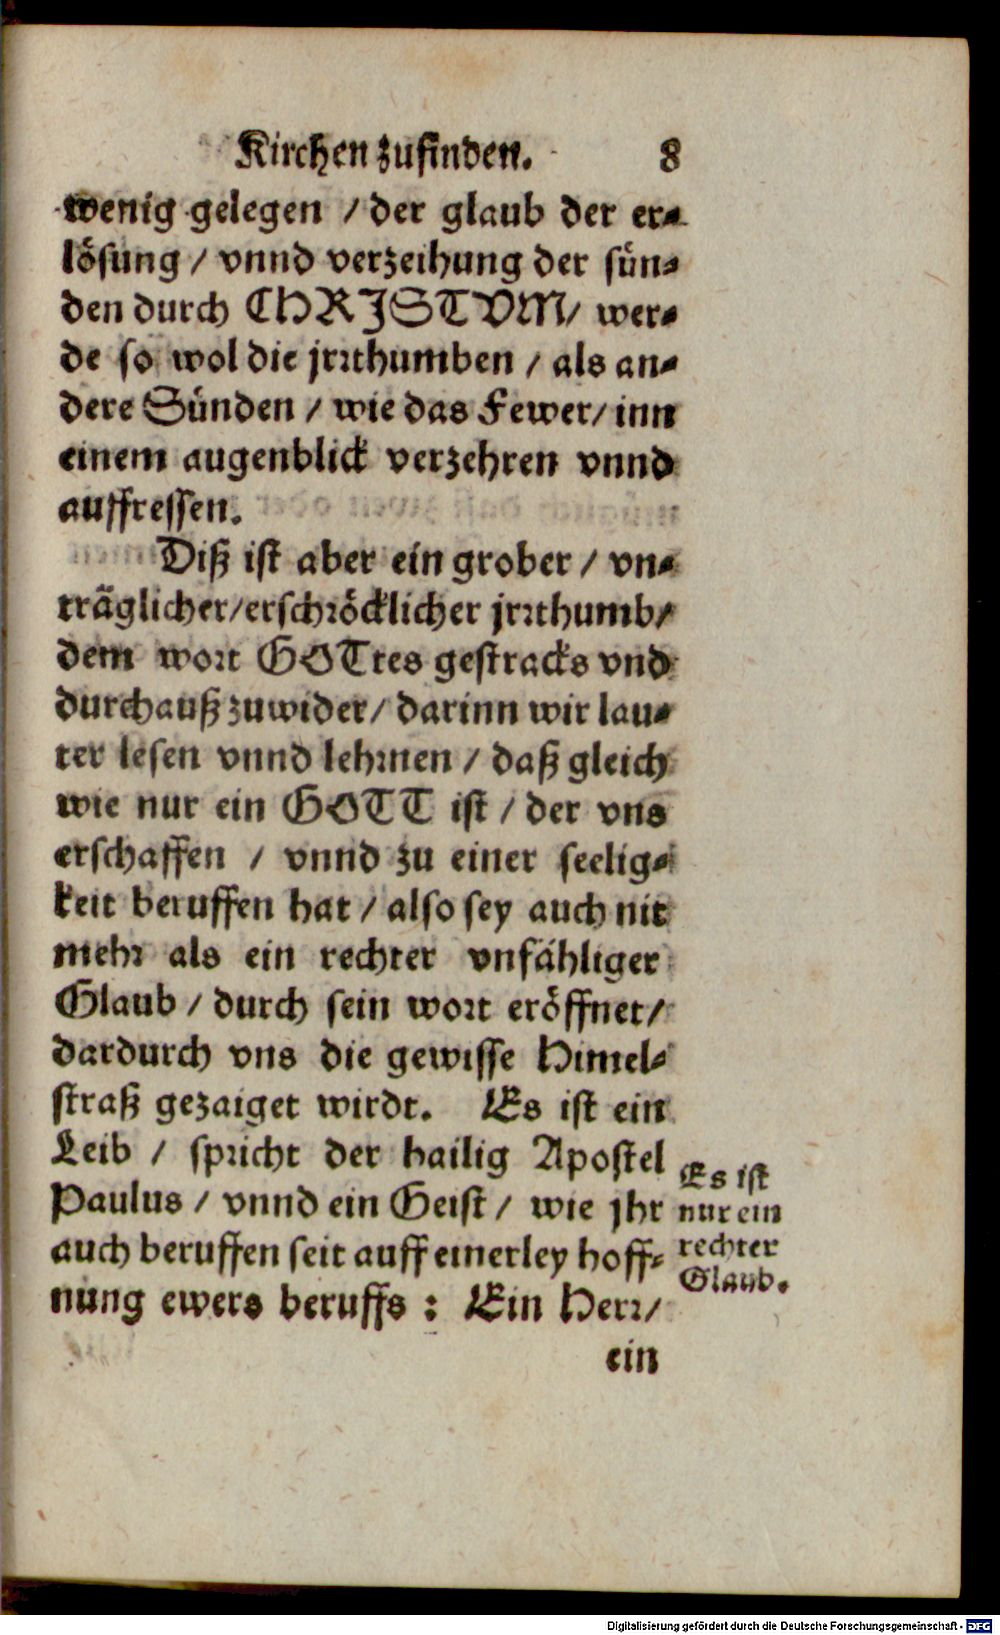 Kirchen zufinden. 8
wenig gelegen / der glaub der er⸗
lösung / vnnd verzeihung der sün⸗
den durch CHRJSTVM / wer⸗
de so wol die jrrthumben / als an⸗
dere Sünden / wie das Fewer / inn
einem augenblick verzehren vnnd
auffressen.
Diß ist aber ein grober / vn⸗
träglicher / erschröcklicher jrrthumb /
dem wort GOTtes gestracks vnd
durchauß zuwider / darinn wir lau⸗
ter lesen vnnd lehrnen / daß gleich
wie nur ein GOTT ist / der vns
erschaffen / vnnd zu einer seelig⸗
keit beruffen hat / also sey auch nit
mehr als ein rechter vnfähliger
Glaub / durch sein wort eröffnet /
dardurch vns die gewisse Himel⸗
straß gezaiget wirdt. Es ist ein
Leib / spricht der hailig Apostel
Paulus / vnnd ein Geist / wie jhr
auch beruffen seit auff einerley hoff⸗
nung ewers beruffs : Ein Herr /
ein
Es ist
nur ein
rechter
Glaub.
Digitalisierung gefördert durch die Deutsche Forschungsgemeinschaft - DFG